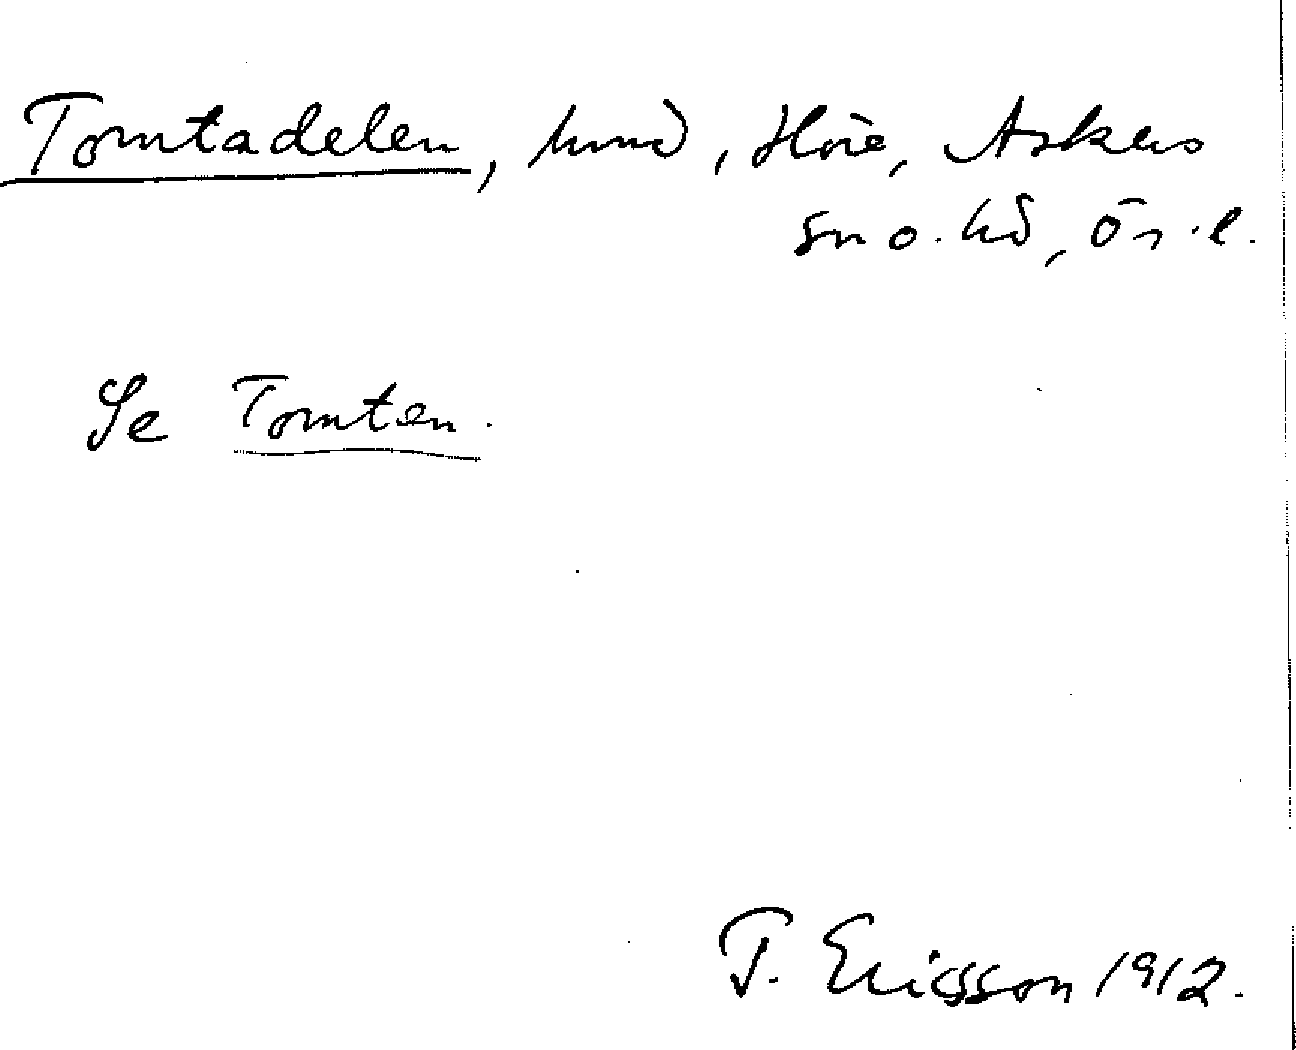 Tomtadelen, hmd, Höre, Askers
sn o. hd, Ör. l.
Se Tomten.
T. Ericsson 1912.